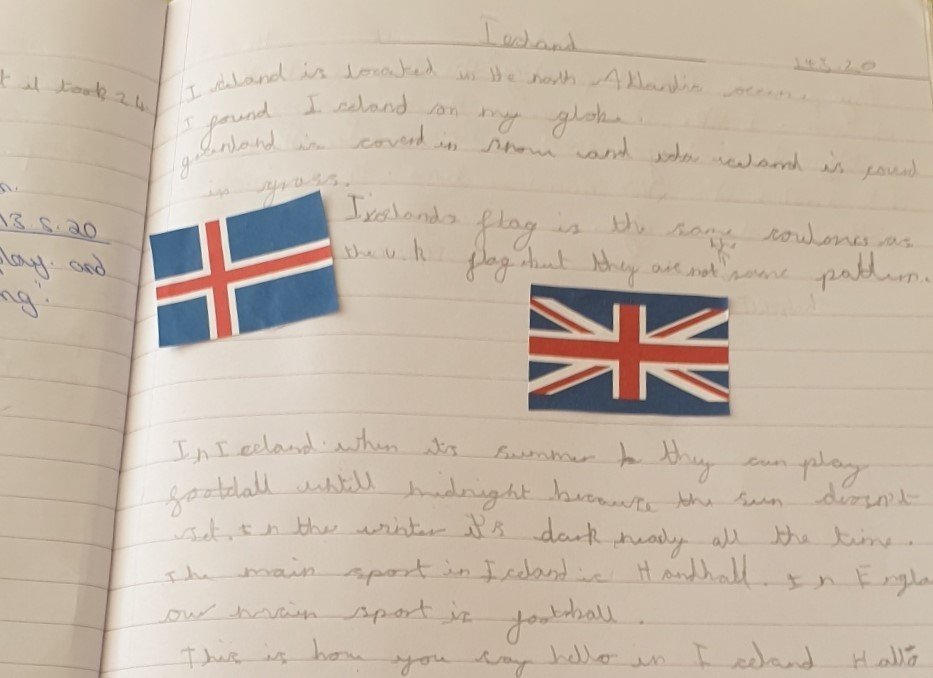 t it took 24
n.
13.5.20
play. and
ng".
Iceland
14.5.20
Iceland is located in the north Atlantic ocean.
I found Iceland on my globe.
greenland is coverd in snow and iceland is coverd
in grass.
Icelands flag is the same coulones as
the u.k flag but they are not the same pattern.
In Iceland when its summer they can play
football untill midnight because the sun doesn't
set. In the winter it's dark nealy all the time.
The main sport in Iceland is Handball. In Engla
our main sport is football.
This is how you say hello in Iceland Halló